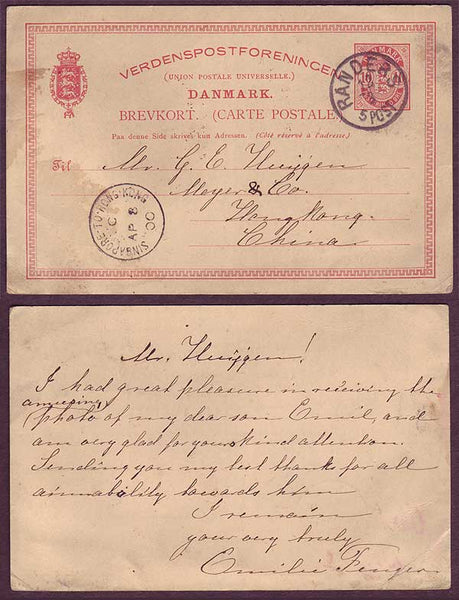 VERDENSPOSTFORENINGEN
(UNION POSTALE UNIVERSELLE.)
DANMARK.
BREVKORT. (CARTE POSTALE.)
Paa denne Side skrives kun Adressen. (Côté réservé à l'adresse.)
DANMARK
10
RANDERS
5 POST
Til Mr. G. E. Huijgen
Meyer & Co.
Hongkong.
China
SINGAPORE-TO-HONG-KONG
C
AP 8
00
Mr. Huijgen!
I had great pleasure in receiving the
amusing
photo of my dear son Emil, and
am very glad for your kind attention.
Sending you my best thank for all
aimability towards him
I remain
your very truly
Emilie Fenger